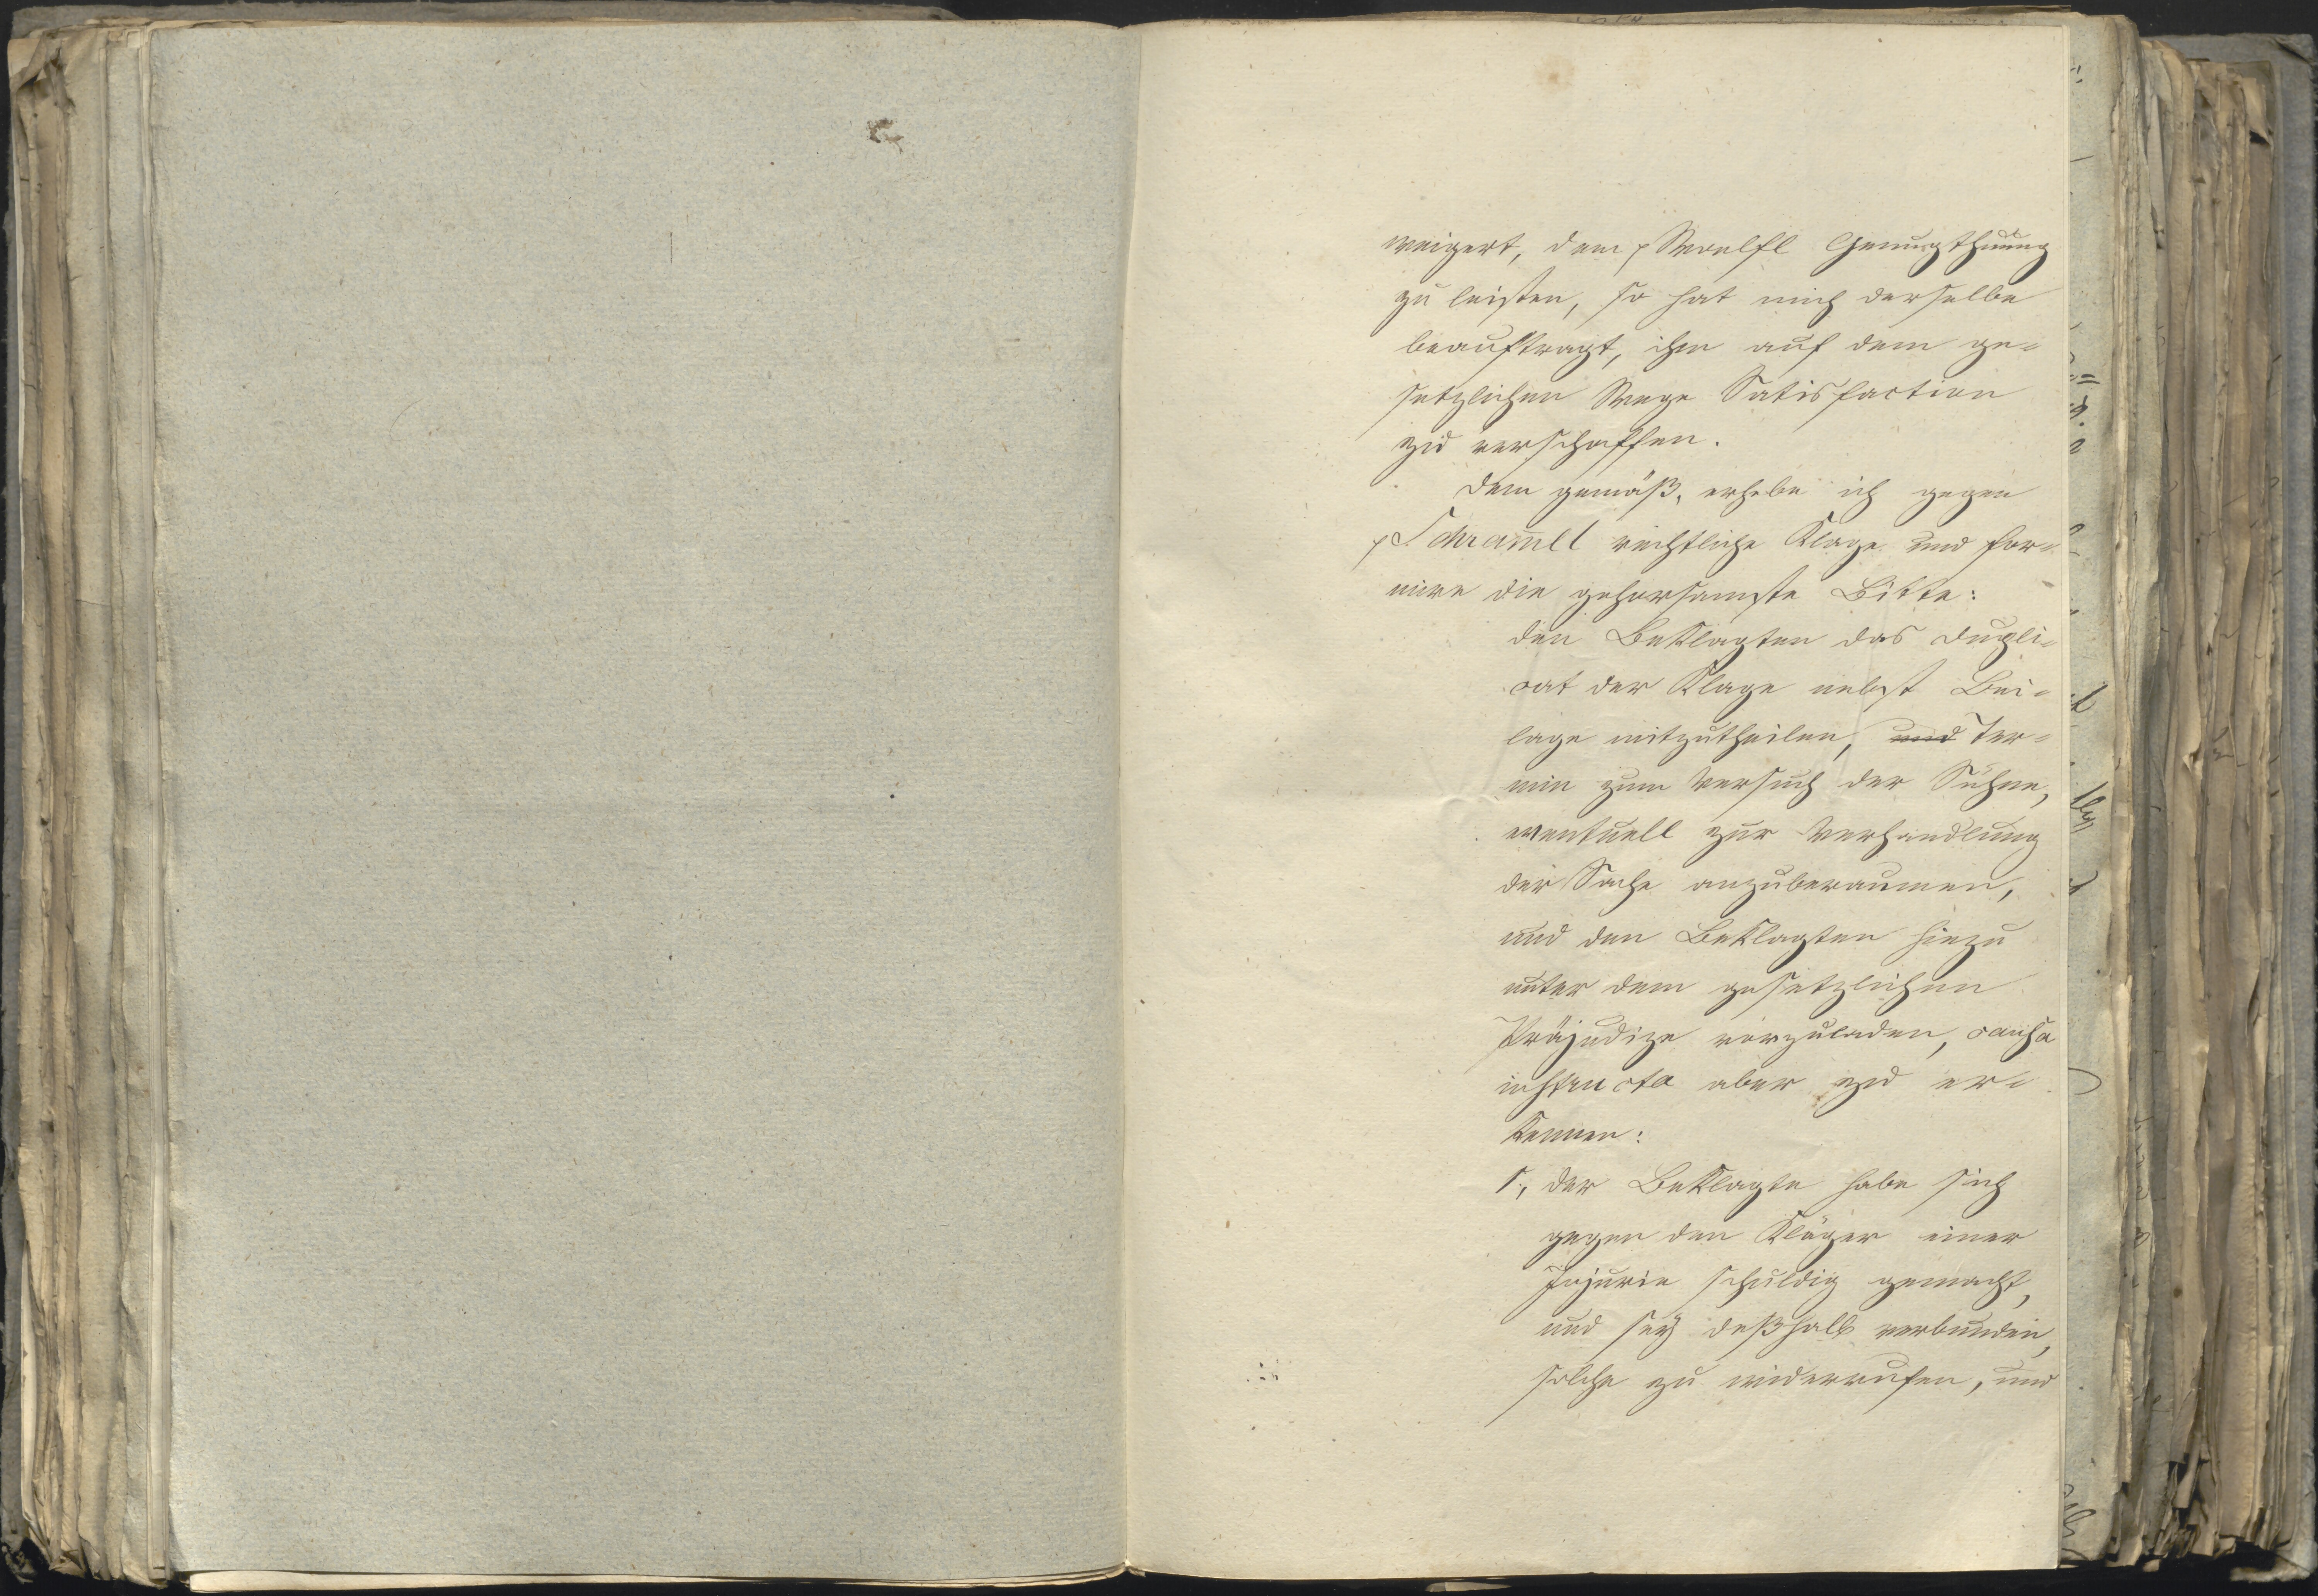 weigert, dem p Woelfl Genugthuung
zu leisten, so hat mich derselbe
beauftragt, ihm auf dem ge-
setzlichen Wege Satisfaction
zu verschaffen.
Dem gemäß, erhebe ich gegen
p Schramel rechtliche Klage und for-
mire die gehorsamste Bitte:
den Beklagten das Dupli-
cat der Klage nebst Bei-
lage mitzutheilen, und Ter-
min zum Versuch der Sühne,
eventuell zur Verhandlung
der Sache anzuberaumen,
und den Beklagten hiezu
unter dem gesetzlichen
Präjudize vorzuladen, causa
instructa aber zu er-
kennen:
1., der Beklagte habe sich
gegen den Kläger einer
Injurie schuldig gemacht,
und sey deßhalb verbunden,
solche zu widerrufen, und